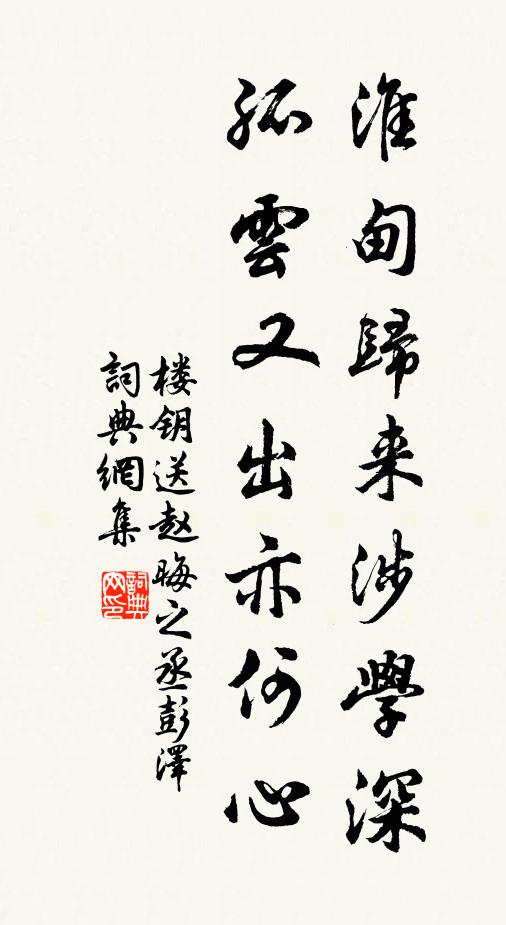 淮甸歸来涉學深
孤雲又出亦何心
楼钥送赵晦之丞彭澤
詞典網集
詞典
网印